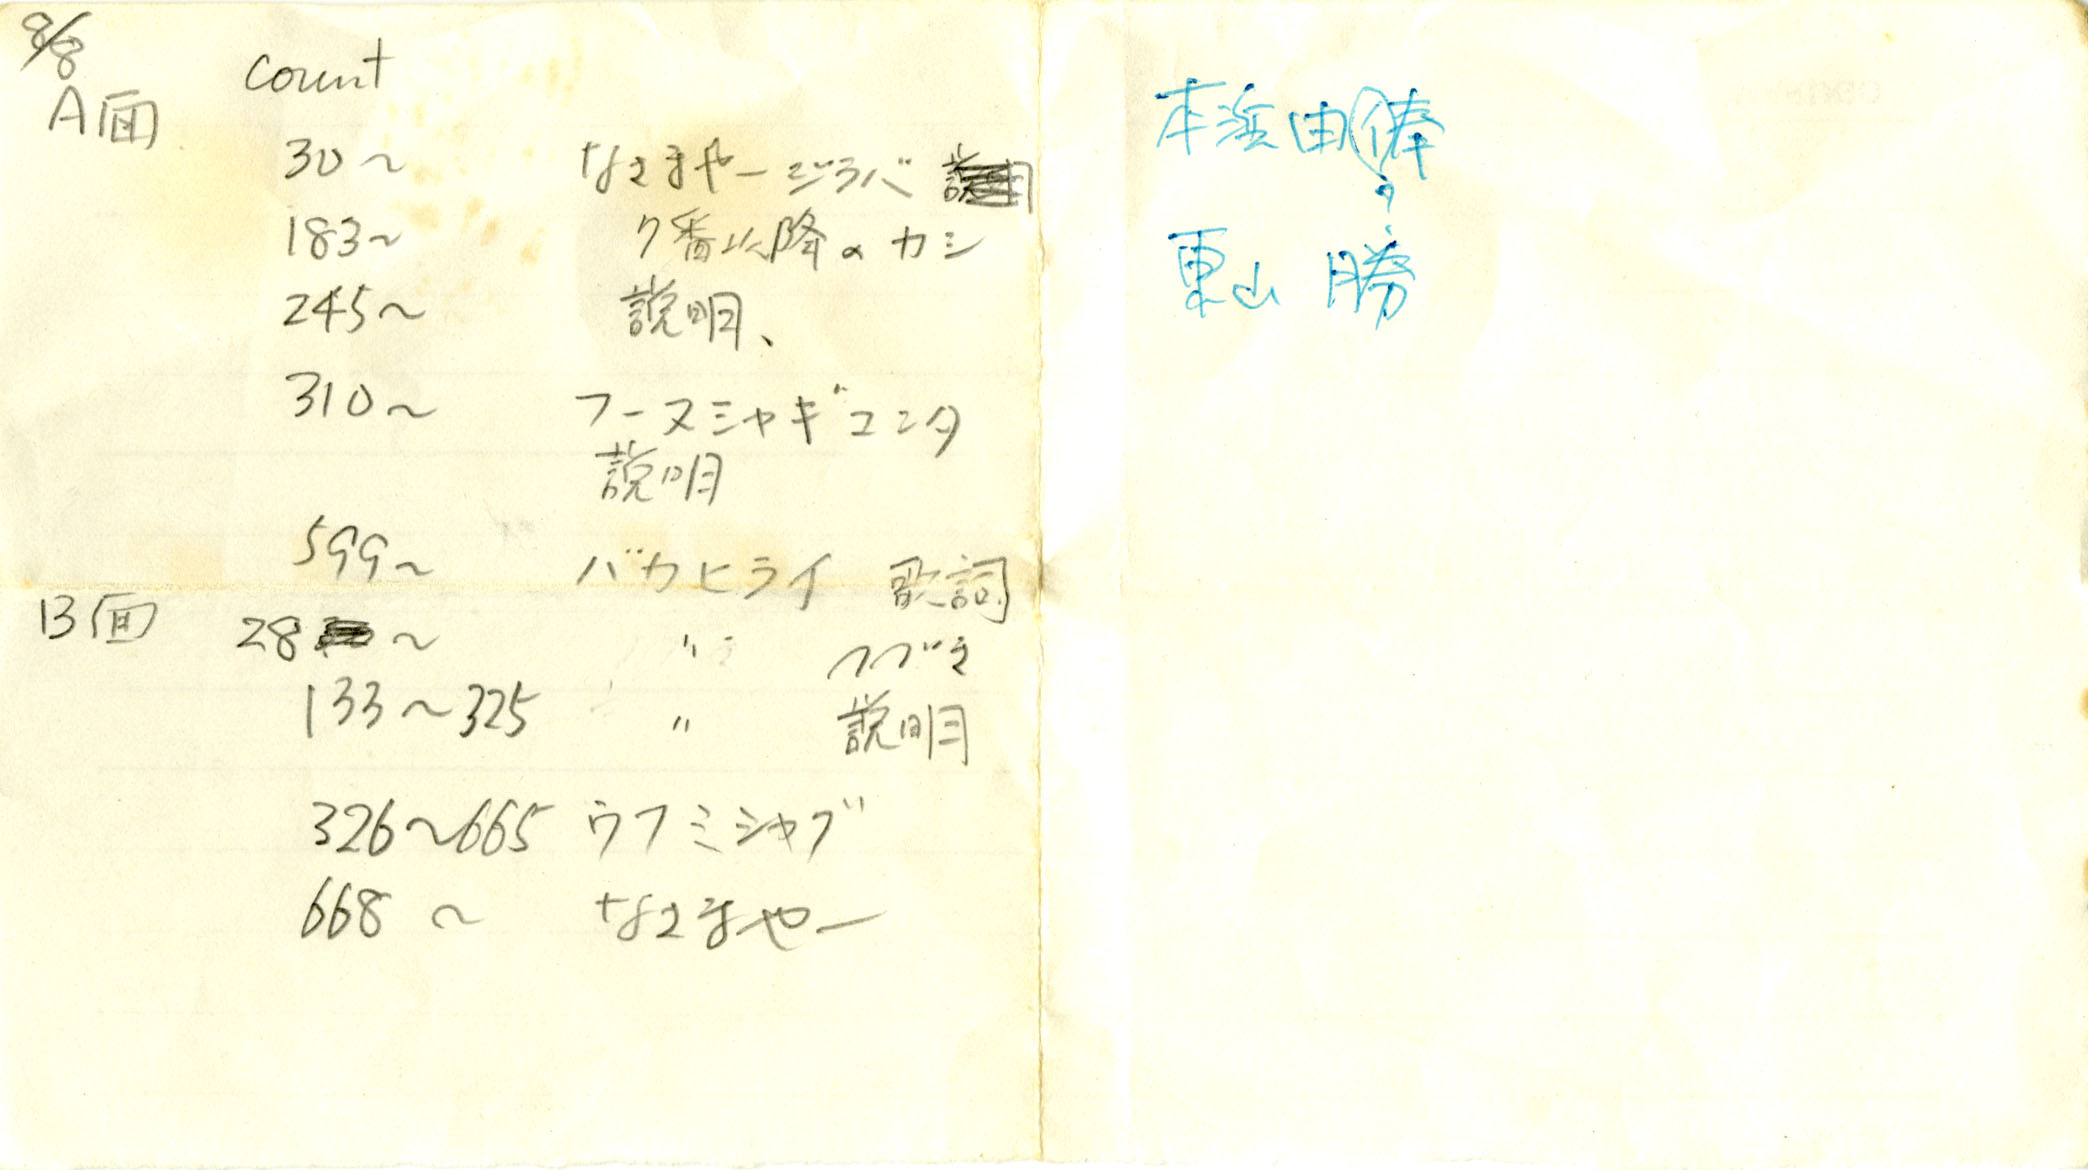 8/8
A面 count
30〜 なさまやージラバ
183〜 7番以降のカシ
245〜 説明、
310〜 フーヌミャギユンタ
説明
599〜 バカヒライ 歌詞
B面 28 〜 〃 つづき
133〜325 〃 説明
326〜665 ウフミシャグ
668 〜 なさまやー
本浜由俸
東山 勝